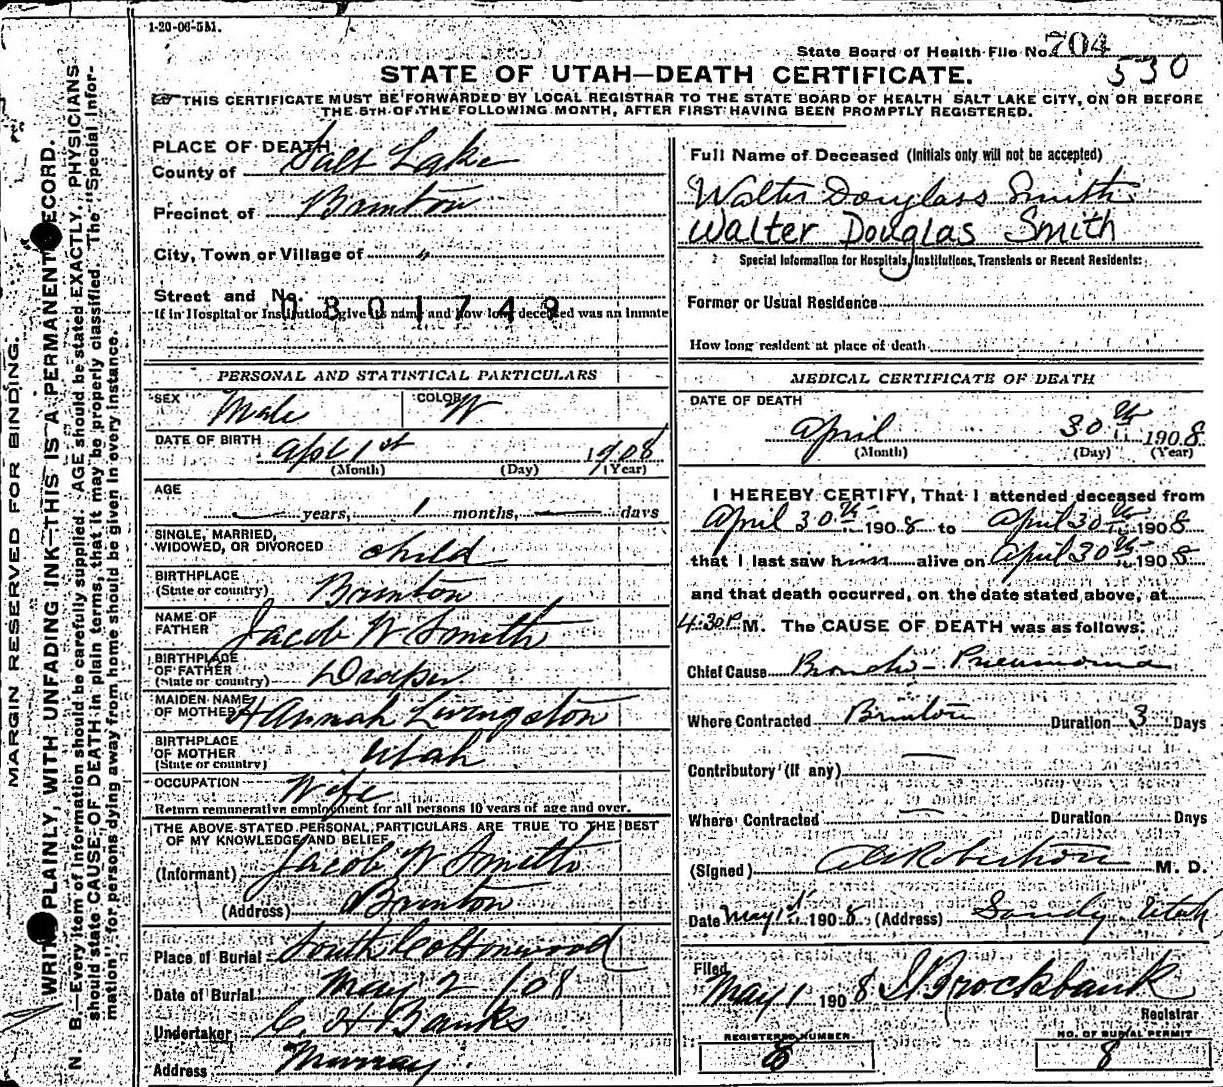 1-20-06-5M.
State Board of Health File No. 704
530
STATE OF UTAH—DEATH CERTIFICATE.
THIS CERTIFICATE MUST BE FORWARDED BY LOCAL REGISTRAR TO THE STATE BOARD OF HEALTH SALT LAKE CITY, ON OR BEFORE
THE 5TH OF THE FOLLOWING MONTH, AFTER FIRST HAVING BEEN PROMPTLY REGISTERED.
MARGIN RESERVED FOR BINDING.
WRITE PLAINLY, WITH UNFADING INK—THIS IS A PERMANENT RECORD.
N B.—Every item of information should be carefully supplied. AGE should be stated EXACTLY. PHYSICIANS
should state CAUSE OF DEATH in plain terms, that it may be properly classified. The "Special Infor-
mation" for persons dying away from home should be given in every instance.
PLACE OF DEATH
County of Salt Lake
Precinct of Brinton
City, Town or Village of "
Street and No.
0801749
If in Hospital or Institution, give its name and how long deceased was an inmate
PERSONAL AND STATISTICAL PARTICULARS
SEX Male COLOR W
DATE OF BIRTH Apl 1st 1908
(Month) (Day) (Year)
AGE
— years, 1 months, — days
SINGLE, MARRIED,
WIDOWED, OR DIVORCED child
BIRTHPLACE
(State or country) Brinton
NAME OF
FATHER Jacob W Smith
BIRTHPLACE
OF FATHER
(State or country) Draper
MAIDEN NAME
OF MOTHER Hannah Livingston
BIRTHPLACE
OF MOTHER
(State or country) Utah
OCCUPATION Wife
Return remunerative employment for all persons 10 years of age and over.
THE ABOVE STATED PERSONAL PARTICULARS ARE TRUE TO THE BEST
OF MY KNOWLEDGE AND BELIEF
(Informant) Jacob W Smith
(Address) Brinton
Place of Burial South Cottonwood
Date of Burial May 2 / 08
Undertaker C H Banks
Address Murray
Full Name of Deceased (Initials only will not be accepted)
Walter Douglass Smith
Walter Douglas Smith
Special Information for Hospitals, Institutions, Transients or Recent Residents:
Former or Usual Residence
How long resident at place of death
MEDICAL CERTIFICATE OF DEATH
DATE OF DEATH
April 30th 1908
(Month) (Day) (Year)
I HEREBY CERTIFY, That I attended deceased from
April 30th 1908 to April 30th 1908
that I last saw him alive on April 30th 1908
and that death occurred, on the date stated above, at
4:30 P M. The CAUSE OF DEATH was as follows:
Chief Cause Broncho-Pneumonia
Where Contracted Brinton Duration 3 Days
Contributory (if any) —
Where Contracted — Duration Days
(Signed) Robertson M. D.
Date May 1st 1908 (Address) Sandy Utah
Filed
May 1 1908 Brockbank
Registrar
REGISTERED NUMBER. NO. OF BURIAL PERMIT
8 8